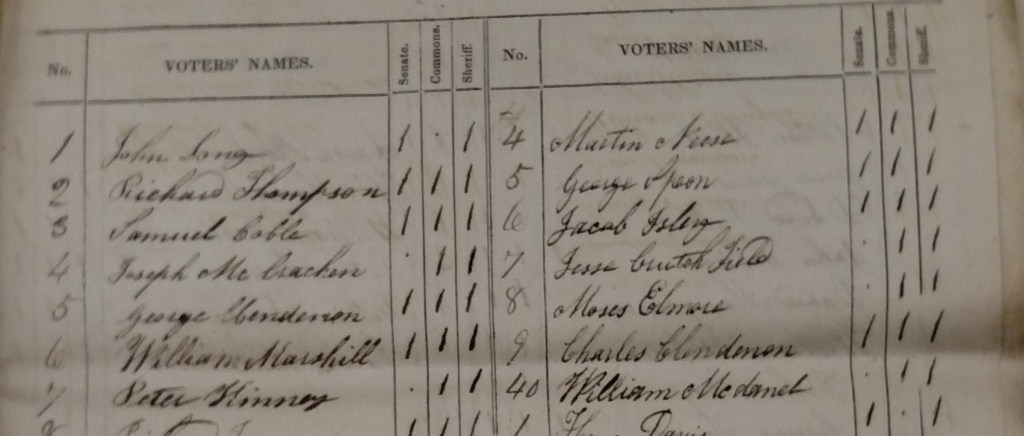 No. VOTERS' NAMES. Senate. Commons. Sheriff. No. VOTERS' NAMES. Senate. Commons. Sheriff.
1 John Long 1 . 1 4 Martin Neese 1 1 1
2 Richard Thompson 1 1 1 5 George Spoon 1 1 1
3 Samuel Coble 1 1 1 6 Jacob Isley 1 1 1
4 Joseph Mc Cracken . 1 1 7 Jesse Crutch Field . 1 1
5 George Clendenon 1 1 1 8 Moses Elmore . 1 1
6 William Marshill 1 1 1 9 Charles Clendenon 1 1 1
7 Peter Kinney . 1 1 40 William Mcdanel . 1 1
8 1 1 1 1 Davis 1 . 1